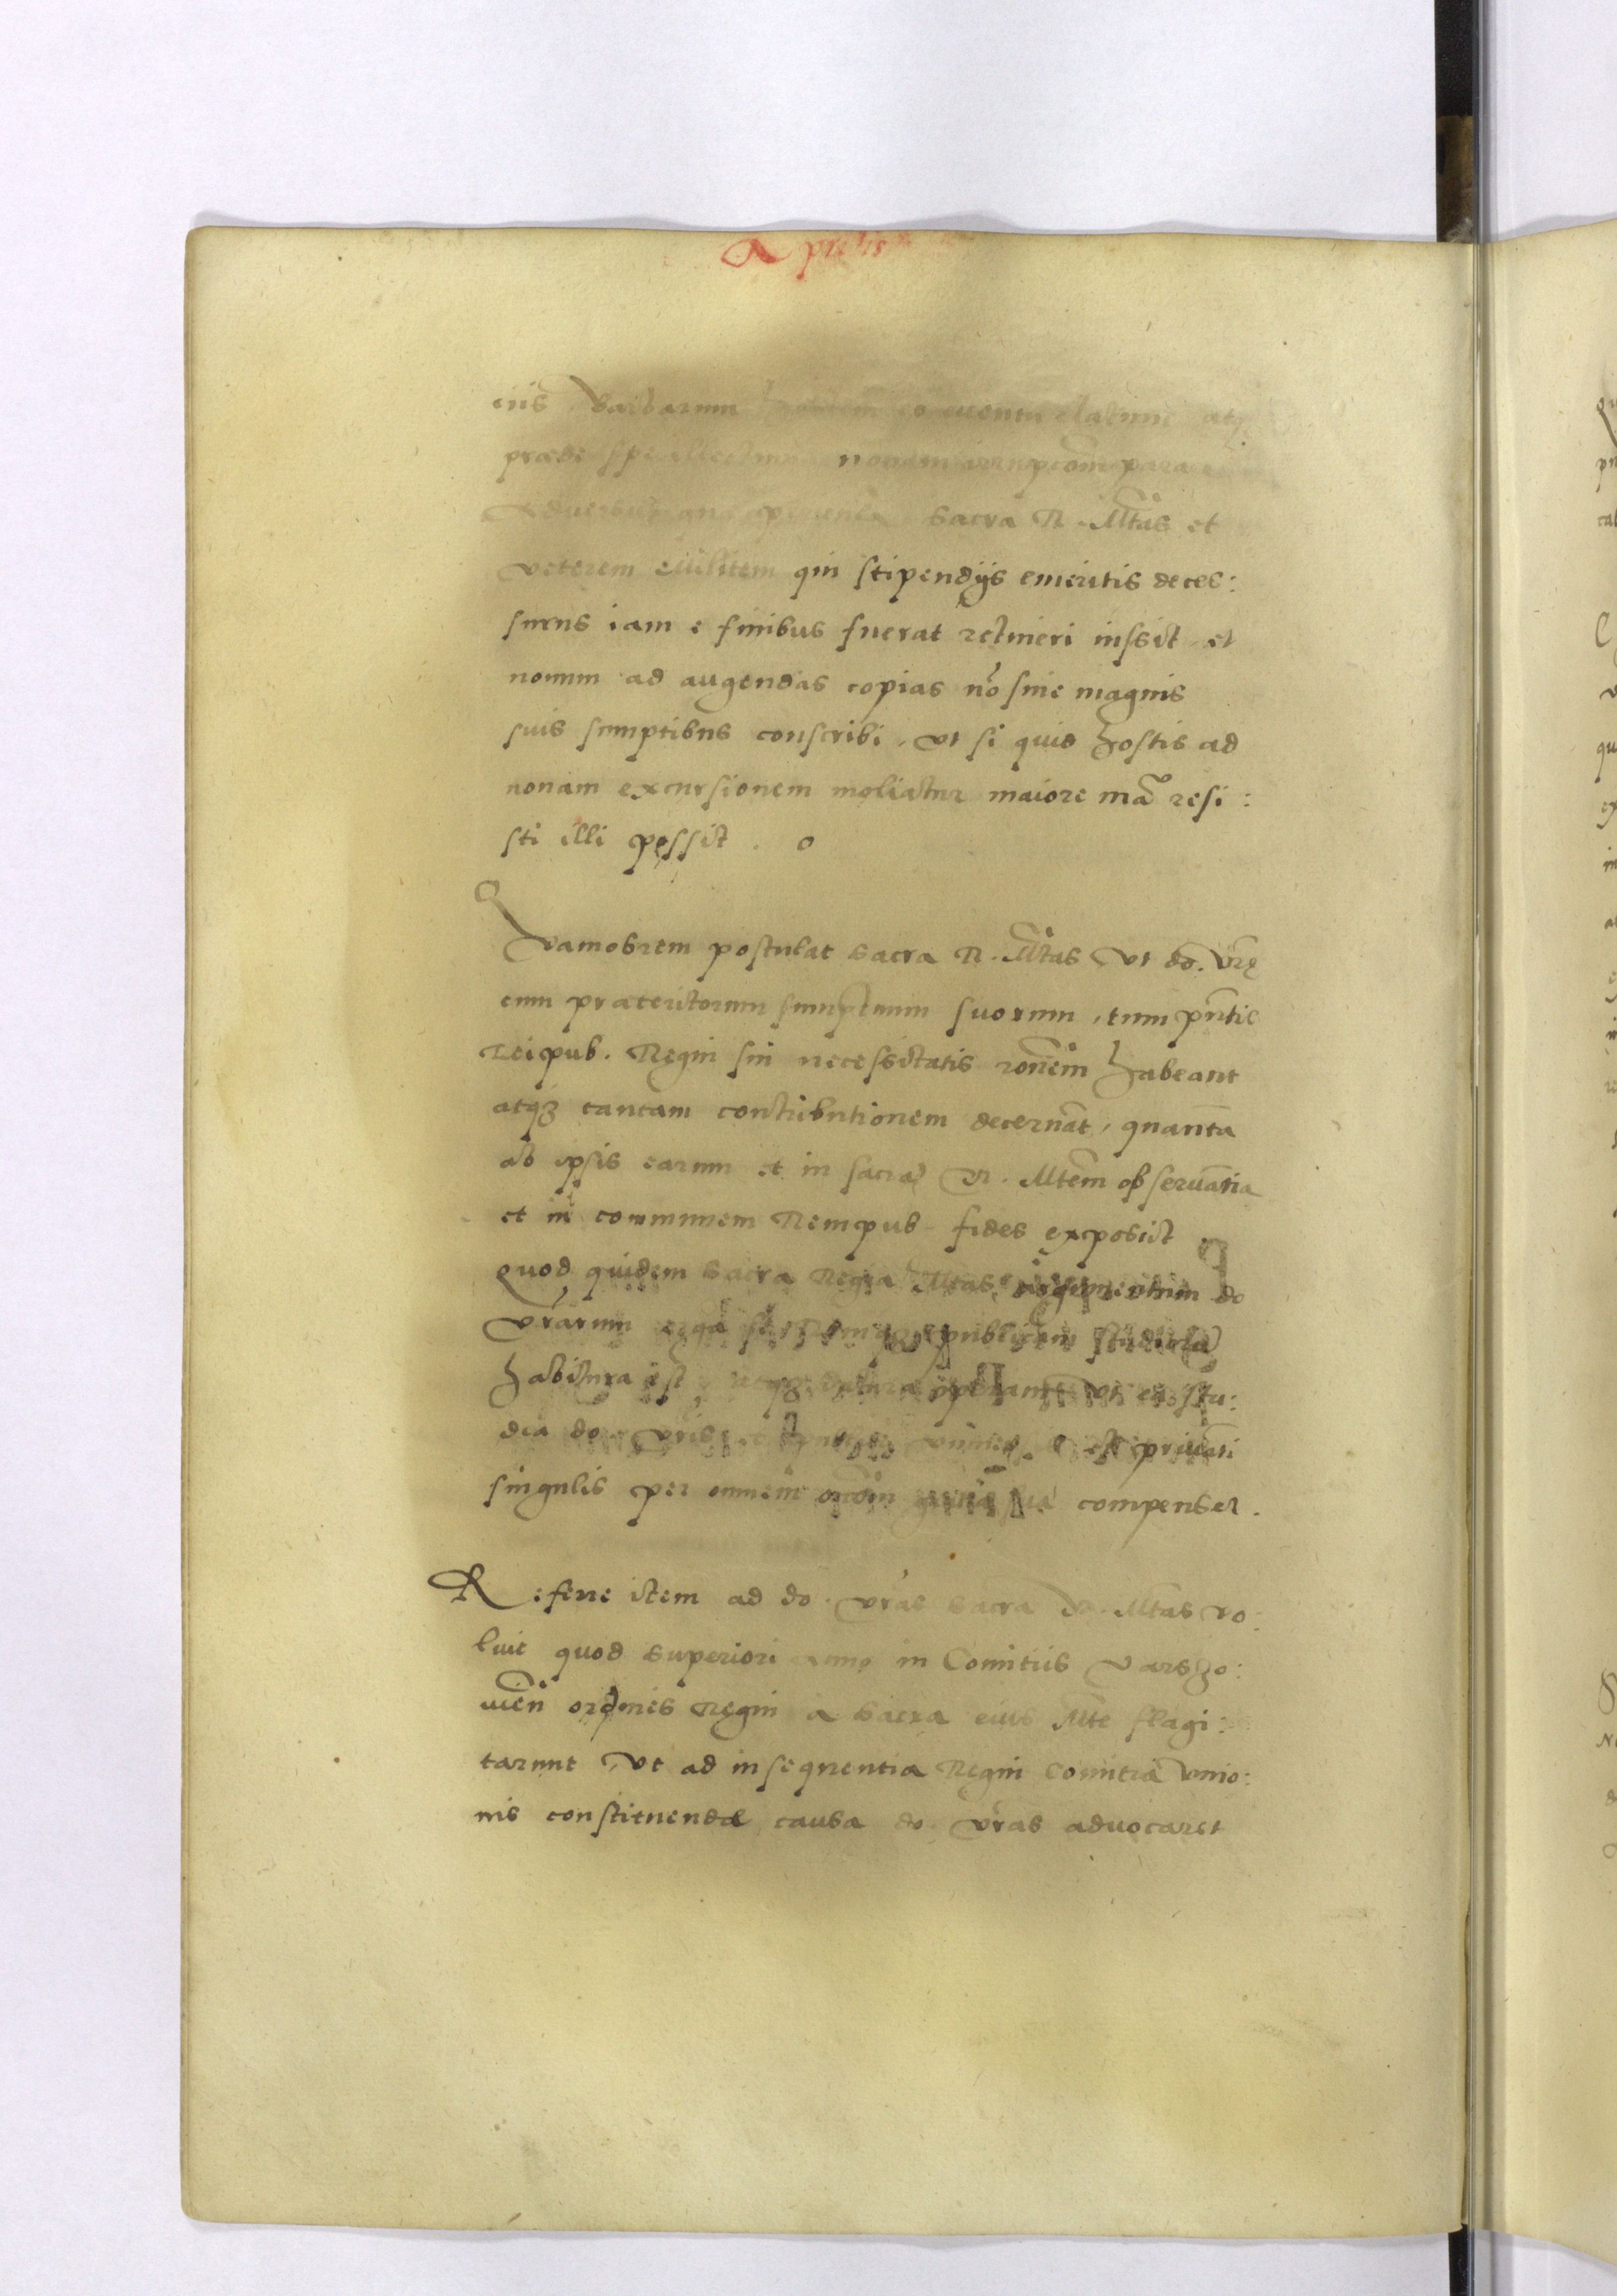 A prelis
eiis barbarum euentu elatum atq;
præde spe nouam irruptōm para
Aduersus Sacra R. Mtas et
veterem militem qui stipendijs emeritis deces:
surus iam e finibus fuerat retineri iussit et
nouum ad augendas copias nō sine magnis
suis sumptibus conscribi, vt si quid hostis ad
nouam excursionem moliatur maiore mā resi:
sti illi possit . o
Quamobrem postulat Sacra R. Mtas vt do. vrę
cum præteritorum sumptuum suorum, tum pntis
Reipub. Regni sui necessitatis ronem habeant
atqz tantam contributionem decernāt, quanta
ab ipsis earum et in sacrā R. Mtem obseruātia
et in communem Rempub. fides exposcit
quod quidem Sacra Regia Mtas argumentum do
vrarum erga se Remqz publicam studiorū
habitura est, operam vt ea stu:
dia do. vris priuāti
singulis per omnem compenset.
Referre item ad do. vras Sacra R. Mtas vo:
luit quod superiori anno in Comitiis Varszo:
uien ordines Regni a Sacra eius Mte flagi:
tarunt, vt ad insequentia Regni Comitia vnio:
nis constituendæ causa do. vras aduocaret